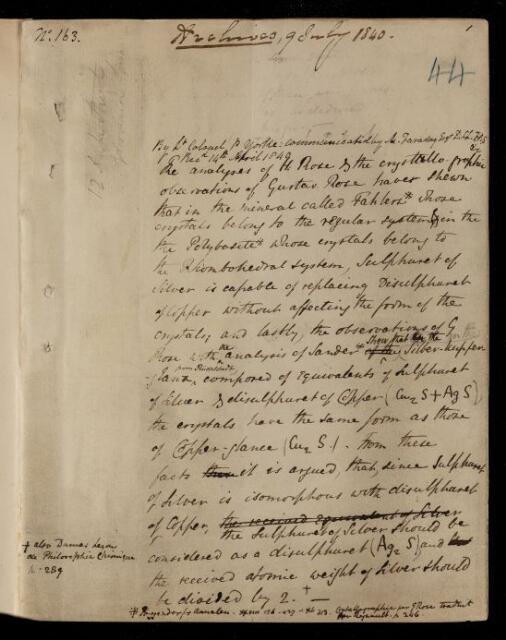 No. 163.
Archives, 9 July 1840.
44
By Lt Colonel P Yorke communicated by M. Faraday Esq D.C.L. F.R.S
Recd 14th April 1849
The analyses of H Rose & the crystallographic
observations of Gustav Rose have shewn
that in the mineral called Fahlerz* whose
crystals belong to the regular system, & in the
the Polybasite* whose crystals belong to
the Rhombohedral system, Sulphuret of
Silver is capable of replacing Disulphuret
of Copper without affecting the form of the
crystals; and lastly, the observations of G
Rose with the analysis of Sander* show that in the Silver-kupfer
glanz, from Rudelstadt, composed of equivalents of Sulphuret
of Silver & disulphuret of Copper (Cu2 S + Ag S)
the crystals have the same form as those
of Copper-glance (Cu2 S.). From these
facts it is argued, that, since Sulphuret
of Silver is isomorphous with disulphuret
of Copper, the received equivalent of Silver
the Sulphuret of Silver should be
considered as a disulphuret (Ag2 S) and
the received atomic weight of Silver should
be divided by 2. + —
+ also Dumas leçon
de Philosophie Chimique
p. 289
* Poggendorfs Annalen